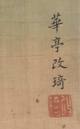 華亭改琦